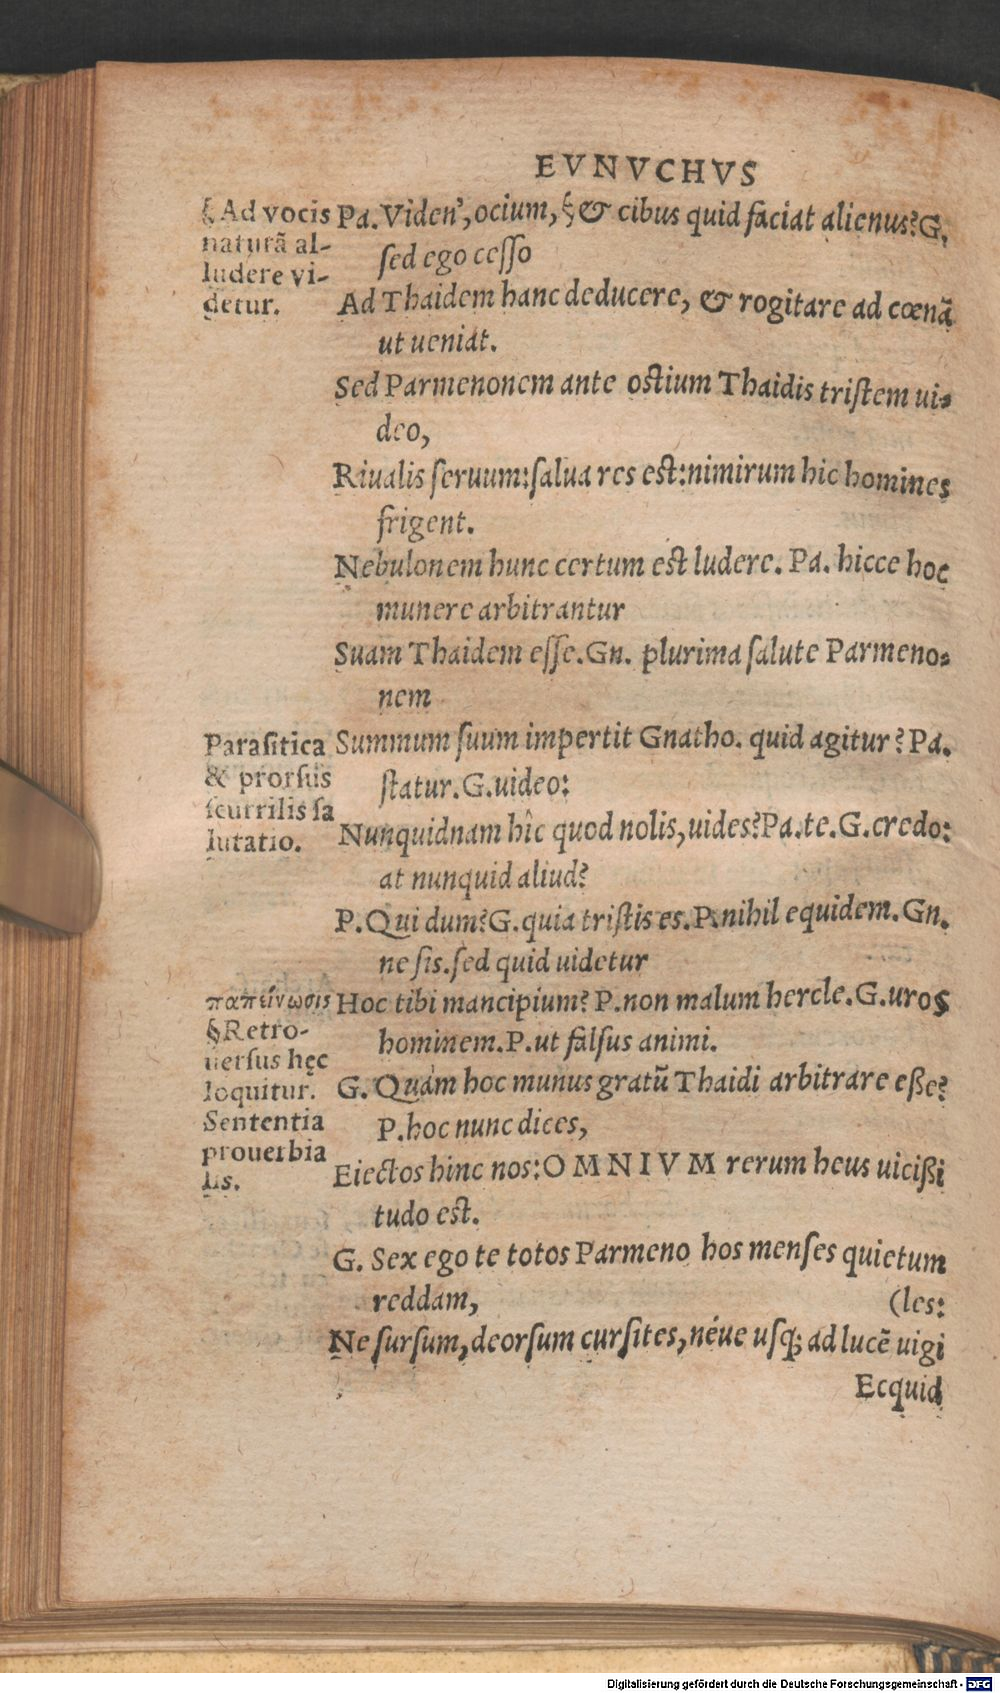 EVNVCHVS
§Ad vocis
naturã al-
ludere vi-
detur.
Pa. Viden', ocium, § & cibus quid faciat alienus? G.
sed ego cesso
Ad Thaidem hanc deducere, & rogitare ad cœnã
ut ueniat.
Sed Parmenonem ante ostium Thaidis tristem ui-
deo,
Riualis seruum: salua res est: nimirum hic homines
frigent.
Nebulonem hunc certum est ludere. Pa. hicce hoc
munere arbitrantur
Suam Thaidem esse. Gn. plurima salute Parmeno-
nem
Parasitica
& prorsus
scurrilis sa
lutatio.
Summum suum impertit Gnatho. quid agitur? Pa.
statur. G. uideo:
Nunquidnam hîc quod nolis, uides? Pa. te. G. credo:
at nunquid aliud?
P. Qui dum? G. quia tristis es. P. nihil equidem. Gn.
ne sis. sed quid uidetur
ταπείνωσις
§Retro-
uersus hęc
loquitur.
Sententia
prouerbia
lis.
Hoc tibi mancipium? P. non malum hercle. G. uro
hominem. P. ut falsus animi.
G. Quàm hoc munus gratũ Thaidi arbitrare eße?
P. hoc nunc dices,
Eiectos hinc nos: OMNIVM rerum heus uicißi
tudo est.
G. Sex ego te totos Parmeno hos menses quietum
reddam,
(les:
Ne sursum, deorsum cursites, néue usq; ad lucẽ uigi
Ecquid
Digitalisierung gefördert durch die Deutsche Forschungsgemeinschaft - DFG